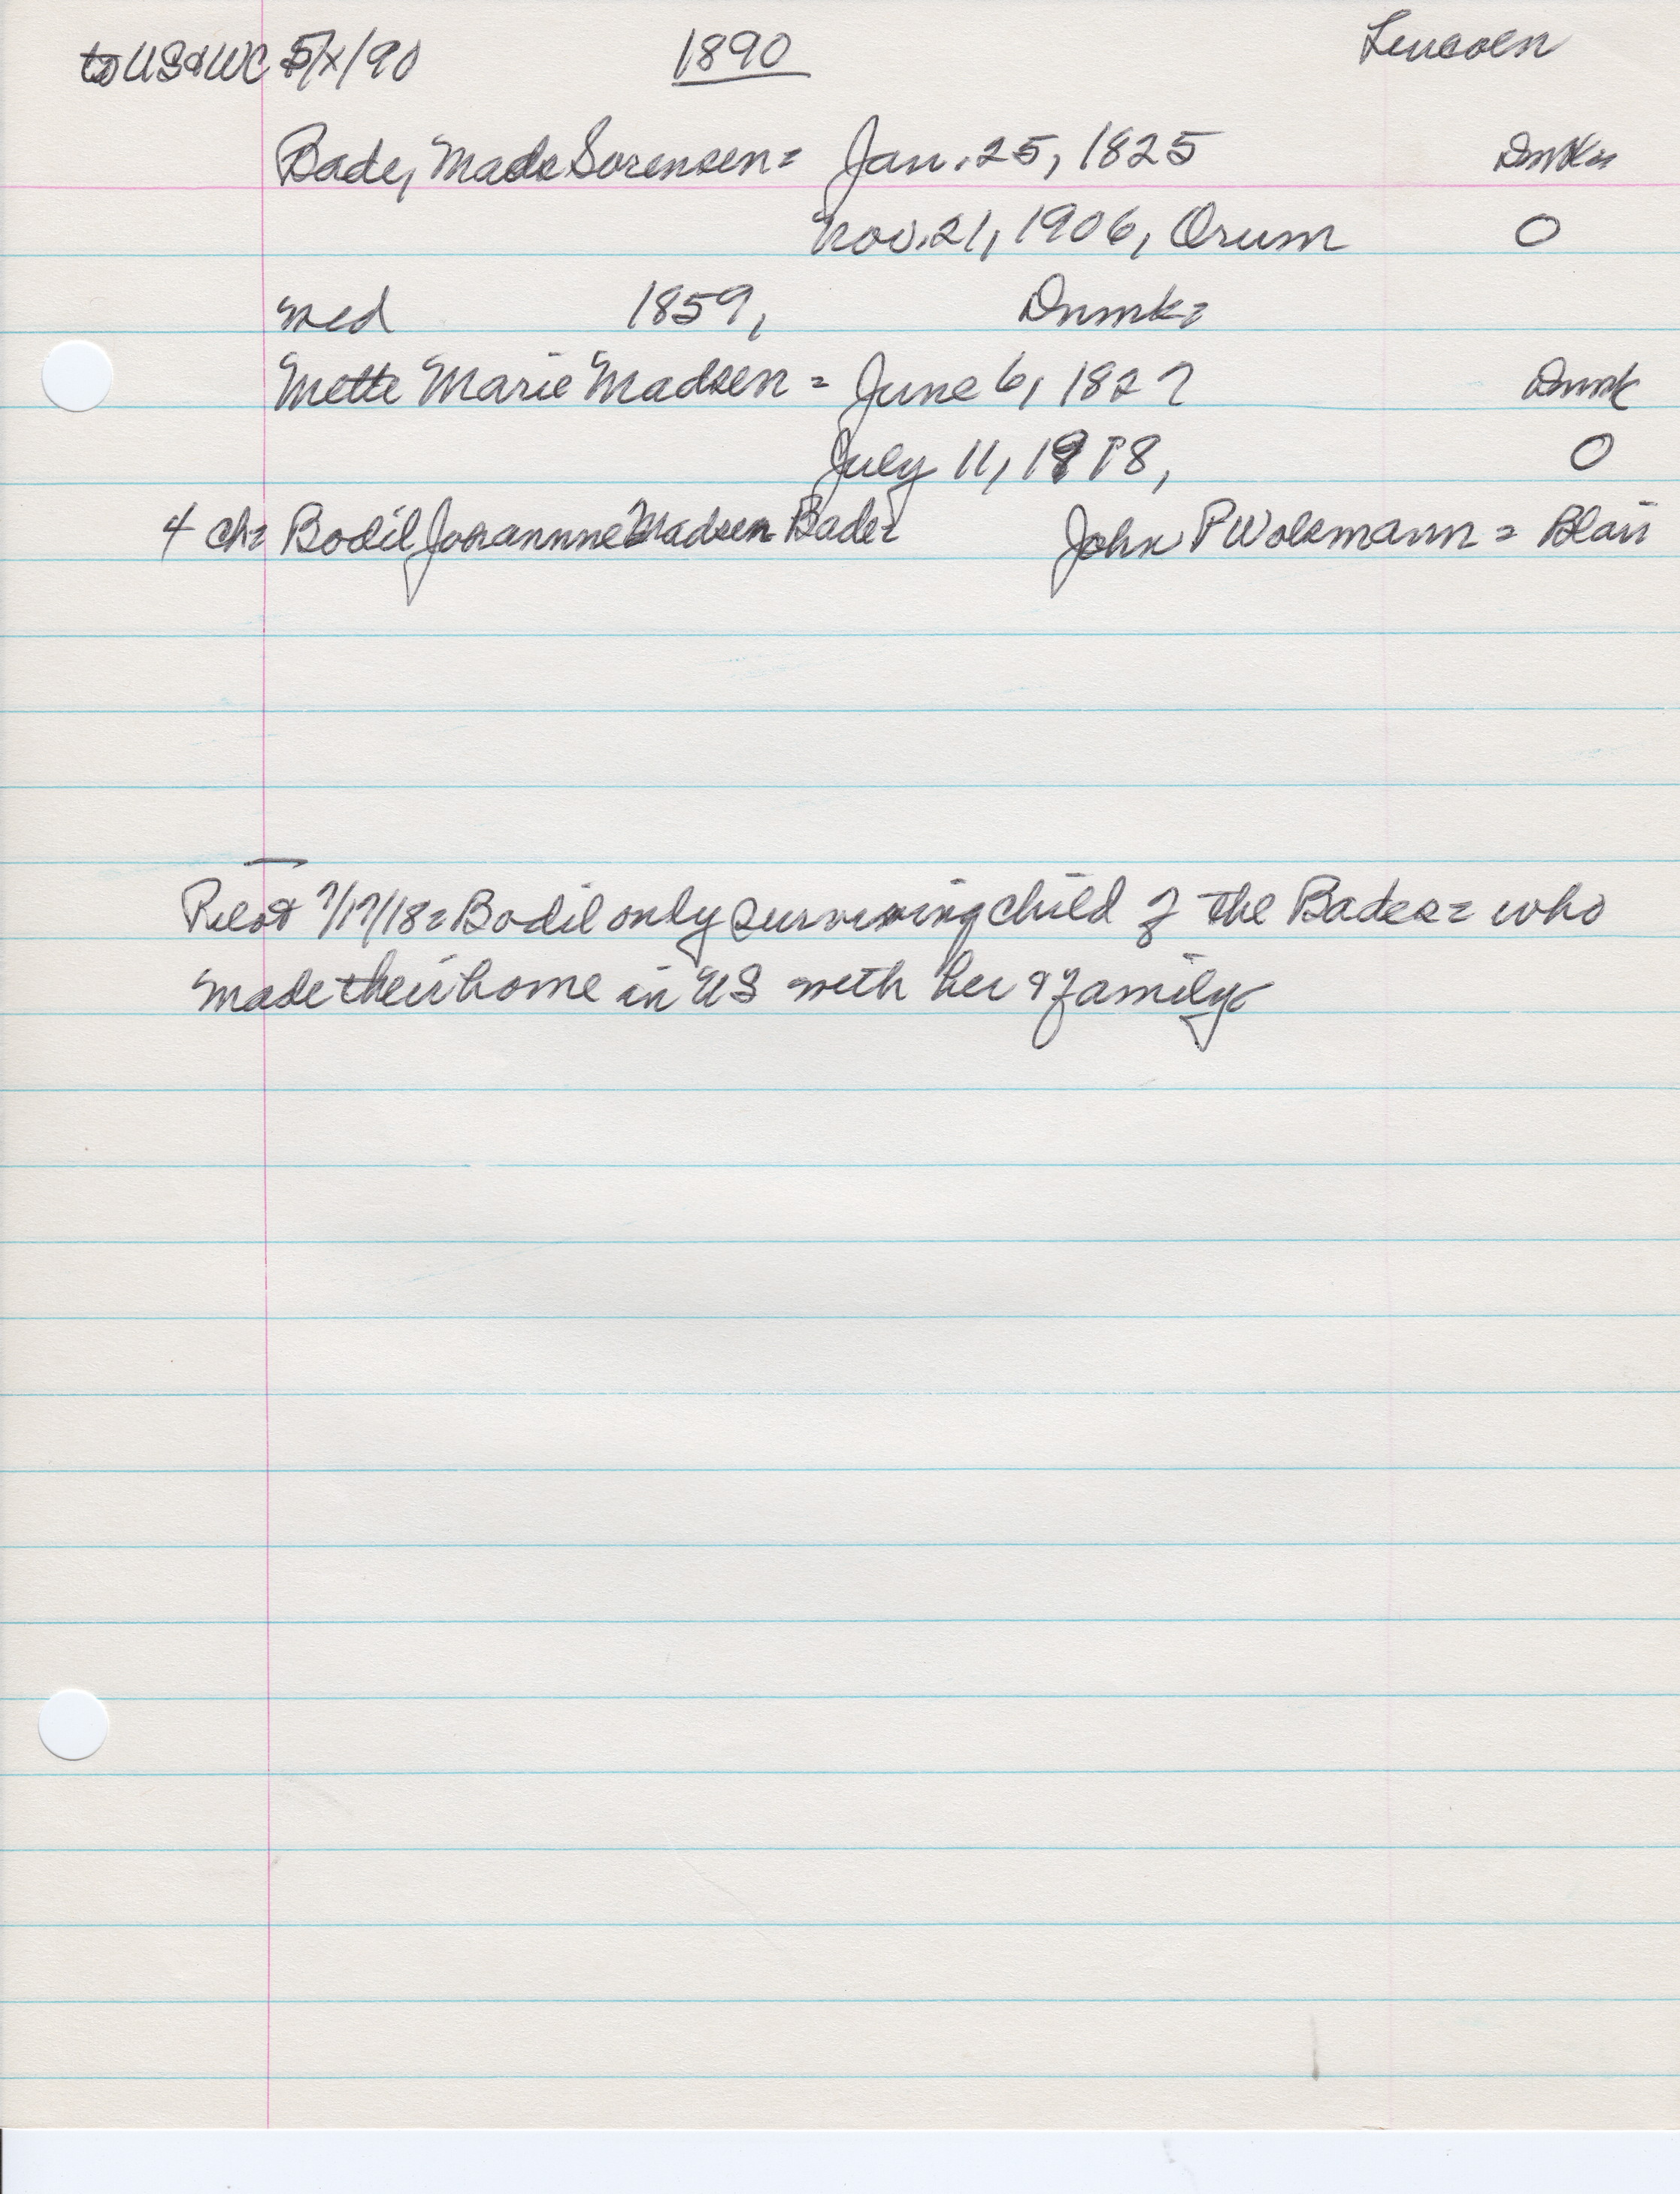 to US & WC 5/x/90 1890 Lincoln
Bade, Mads Sorensen = Jan. 25, 1825 Dnmk =
Nov. 21, 1906, Orum O
med 1859, Dnmk =
Mette Marie Madsen = June 6, 1827 Dnmk
July 11, 1918, O
4 ch = Bodil Joharannne Madsen Bade = John P Wolsmann = Blair
Pilot 7/17/18 = Bodil only surviving child of the Bades = who
made their home in US with her & family.